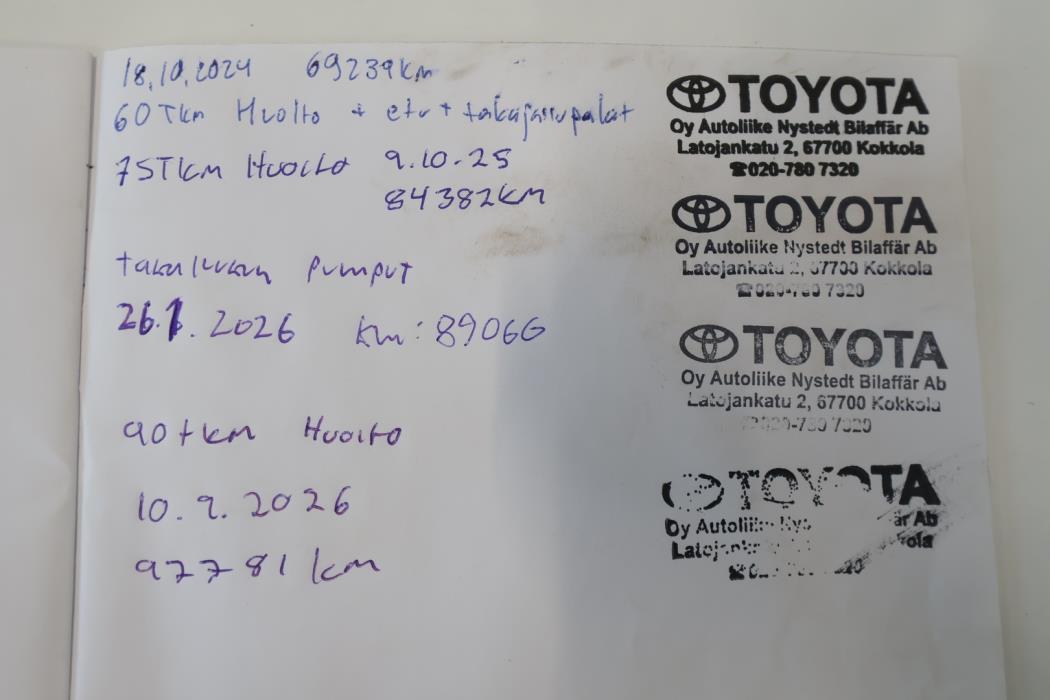 18.10.2024 69239km
60Tkm Huolto + etu + takajarrupalat
75Tkm Huolto 9.10.25
84382km
takaluukun pumput
26.1.2026 km: 89066
90tkm Huolto
10.9.2026
97781km
TOYOTA
Oy Autoliike Nystedt Bilaffär Ab
Latojankatu 2, 67700 Kokkola
☎020-780 7320
TOYOTA
Oy Autoliike Nystedt Bilaffär Ab
Latojankatu 2, 67700 Kokkola
☎020-780 7320
TOYOTA
Oy Autoliike Nystedt Bilaffär Ab
Latojankatu 2, 67700 Kokkola
☎020-780 7320
TOYOTA
Oy Autoliike